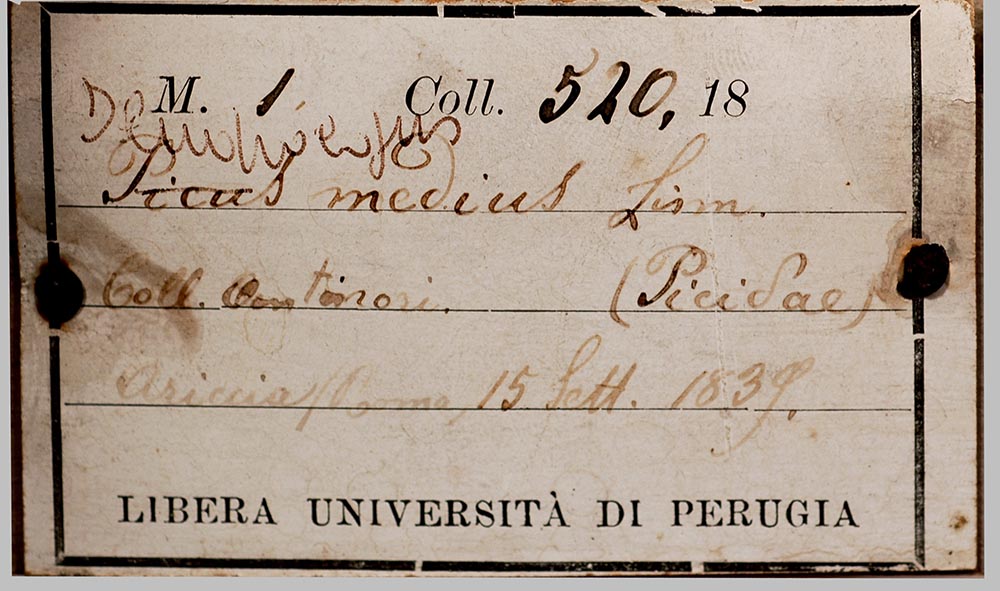 M. 1 Coll. 520, 18
Dendrocopus
Picus medius Linn.
Coll. Antinori. (Picidae)
Ariccia (Roma) 15 Sett. 1839.
LIBERA UNIVERSITÀ DI PERUGIA